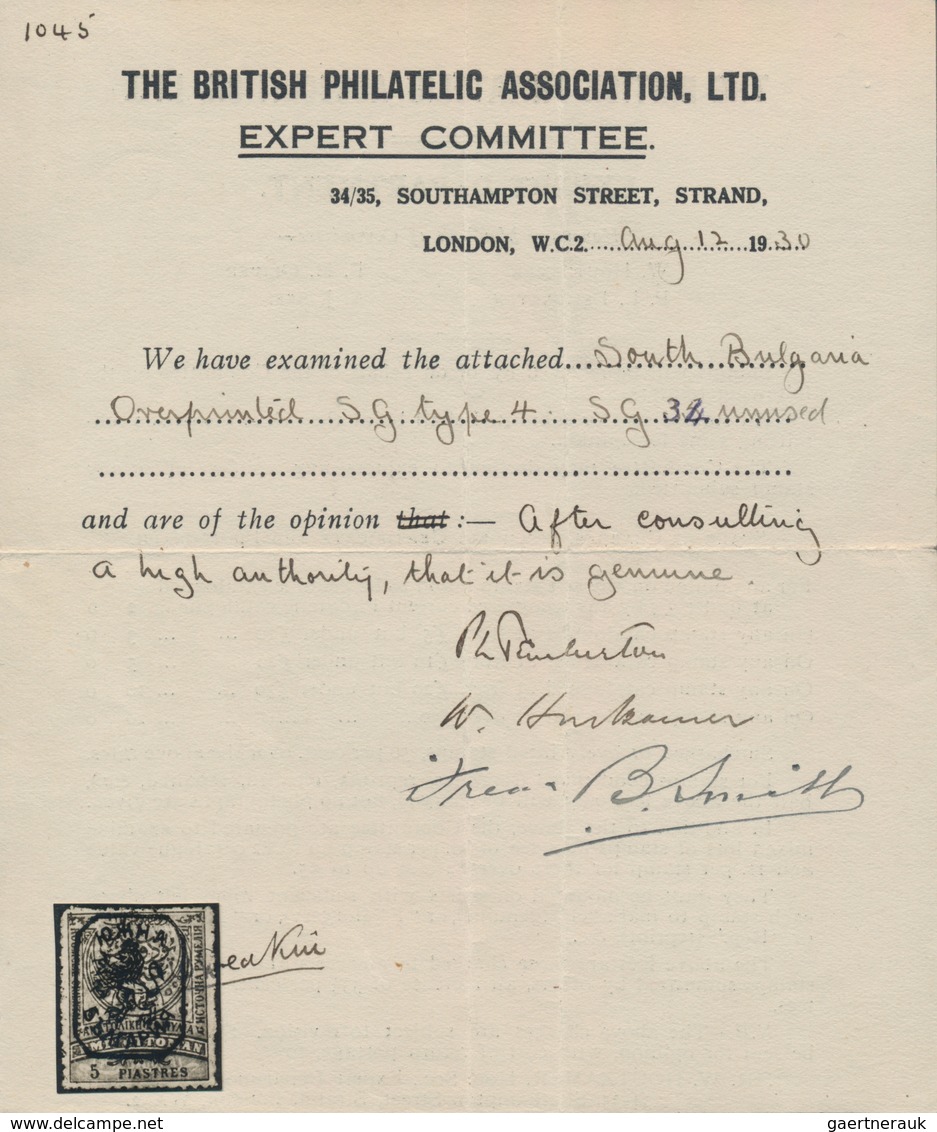 1045
THE BRITISH PHILATELIC ASSOCIATION, LTD.
EXPERT COMMITTEE.
34/35, SOUTHAMPTON STREET, STRAND,
LONDON, W.C.2. Aug 12 1930
We have examined the attached South Bulgaria
Overprinted SG type 4. SG unused
and are of the opinion that :— After consulting
a high authority, that it is genuine.
W.
B. Smith
ЮЖНА
ИСТОЧНА РУМЕЛИЯ
5 PIASTRES
delcampe.net
gaertnerauk